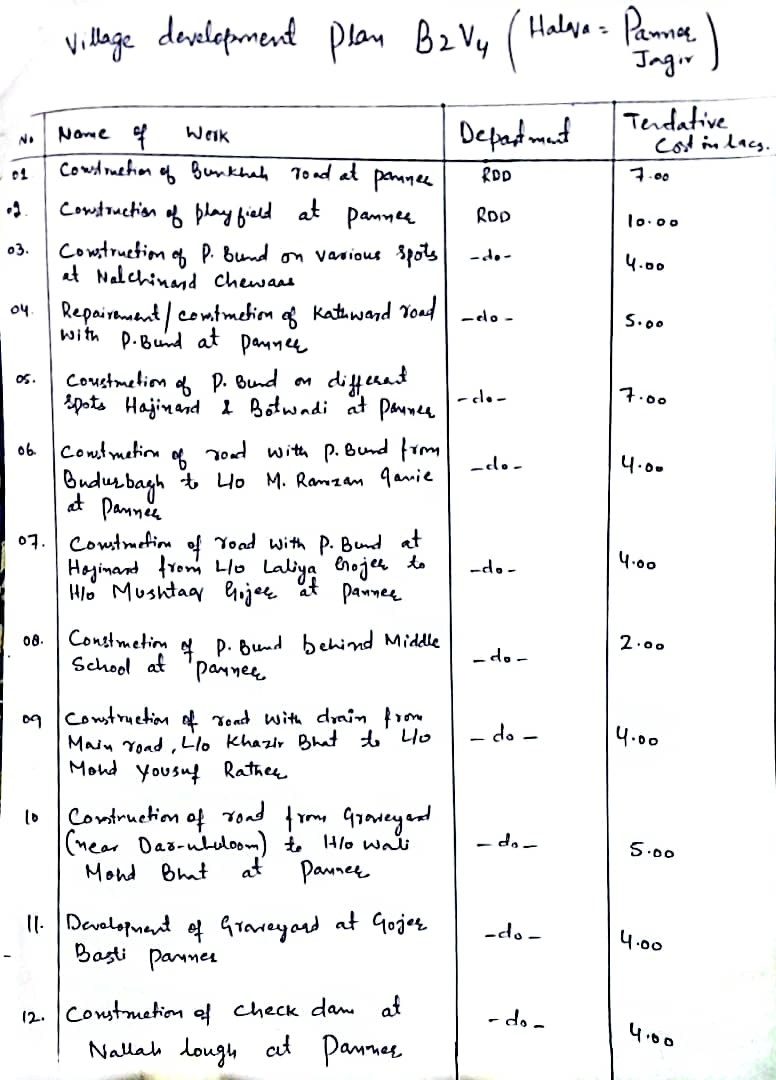 Village development plan B2V4 (Halqa = Panner Jagir)
No Name of Work Department Tendative Cost in Lacs.
01 Construction of Bunkhah road at panner RDD 7.00
02. Construction of play field at panner RDD 10.00
03. Construction of P. Bund on various spots -do- 4.00
at Nalchinard Chewaas
04. Repairement / construction of Kathward road -do- 5.00
with P.Bund at panner
05. Construction of P. Bund on different -do- 7.00
spots Hajinard & Botwadi at panner
06. Construction of road with P. Bund from -do- 4.00
Budurbagh to L/o M. Ramzan ganie
at Panner
07. Construction of road with P. Bund at
Hajinard from L/o Laliya Gojer to -do- 4.00
H/o Mushtaq Gojer at panner
08. Construction of P. Bund behind Middle -do- 2.00
School at panner
09 Construction of road with drain from
Main road, L/o Khazir Bhat to L/o -do- 4.00
Mohd yousuf Rather
10 Construction of road from Graveyard
(near Dar-ul-uloom) to H/o wali -do- 5.00
Mohd Bhat at Panner
11. Development of Graveyard at Gojer -do- 4.00
Basti panner
12. Construction of check dam at -do- 4.00
Nallah lough at Panner